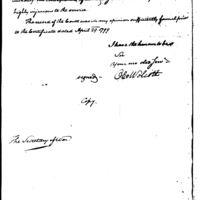 highly injurious to the source
The record of the Court was in my opinion sufficiently formal prior
to the Certificate dated April 29 1799
I have the honor to be &c
Sir
Your mo obed Serv t
signed – Ol Wolcott
Copy.
The Secretary of War